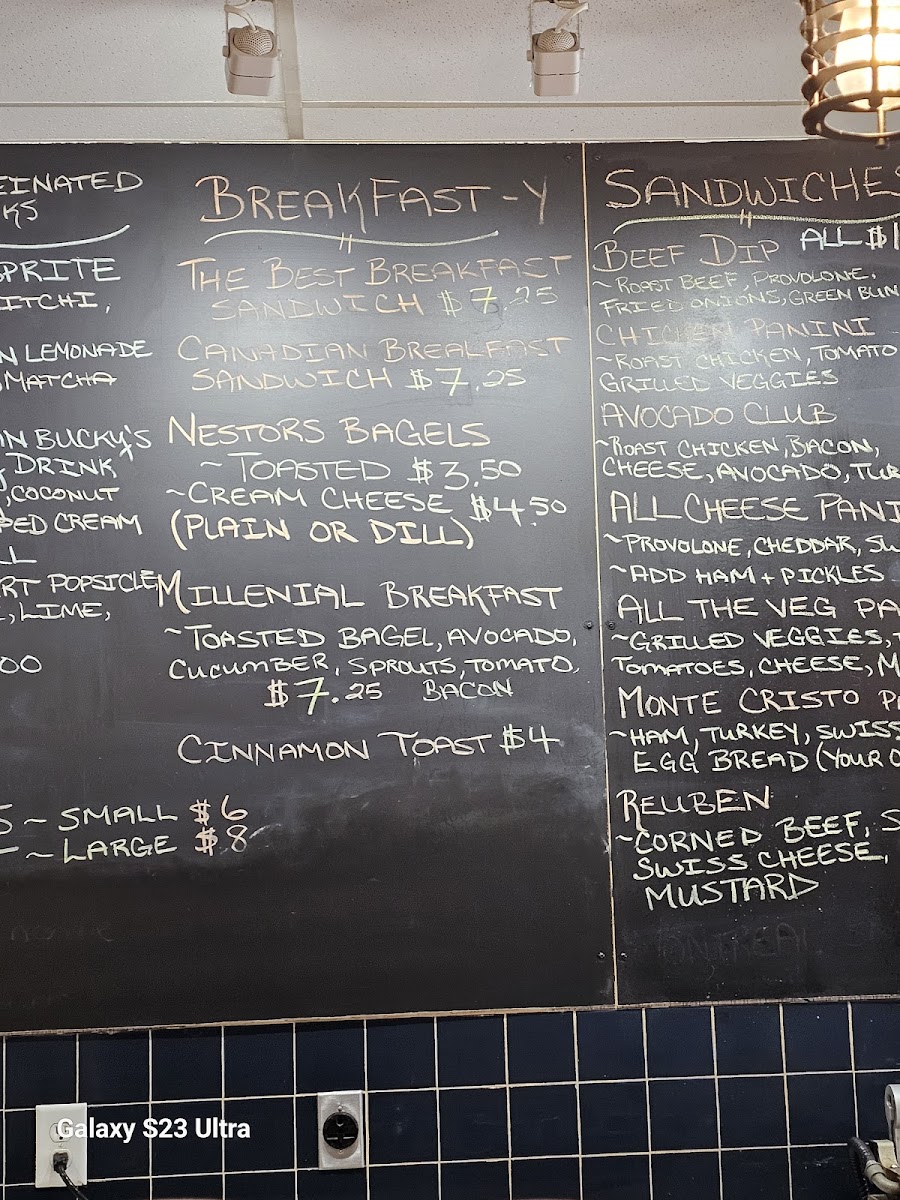 SPRITE
LEMONADE
MATCHA
BUCKY'S
DRINK
COCONUT
CREAM
POPSICLE
, LIME,
~ SMALL $6
~ LARGE $8
BREAKFAST-Y
THE BEST BREAKFAST
SANDWICH $7.25
CANADIAN BREALFAST
SANDWICH $7.25
NESTORS BAGELS
~ TOASTED $3.50
~CREAM CHEESE $4.50
(PLAIN OR DILL)
MILLENIAL BREAKFAST
~TOASTED BAGEL, AVOCADO,
CUCUMBER, SPROUTS, TOMATO,
$7.25 BACON
CINNAMON TOAST $4
SANDWICHES
ALL $1
BEEF DIP
~ROAST BEEF, PROVOLONE,
FRIED ONIONS, GREEN BUN
CHICKEN PANINI
~ROAST CHICKEN, TOMATO
GRILLED VEGGIES
AVOCADO CLUB
~ROAST CHICKEN, BACON,
CHEESE, AVOCADO,
ALL CHEESE
~PROVOLONE, CHEDDAR,
~ADD HAM + PICKLES
ALL THE VEG
~GRILLED VEGGIES,
TOMATOES, CHEESE,
MONTE CRISTO
~HAM, TURKEY, SWISS
EGG BREAD (YOUR
REUBEN
~CORNED BEEF,
SWISS CHEESE,
MUSTARD
Galaxy S23 Ultra